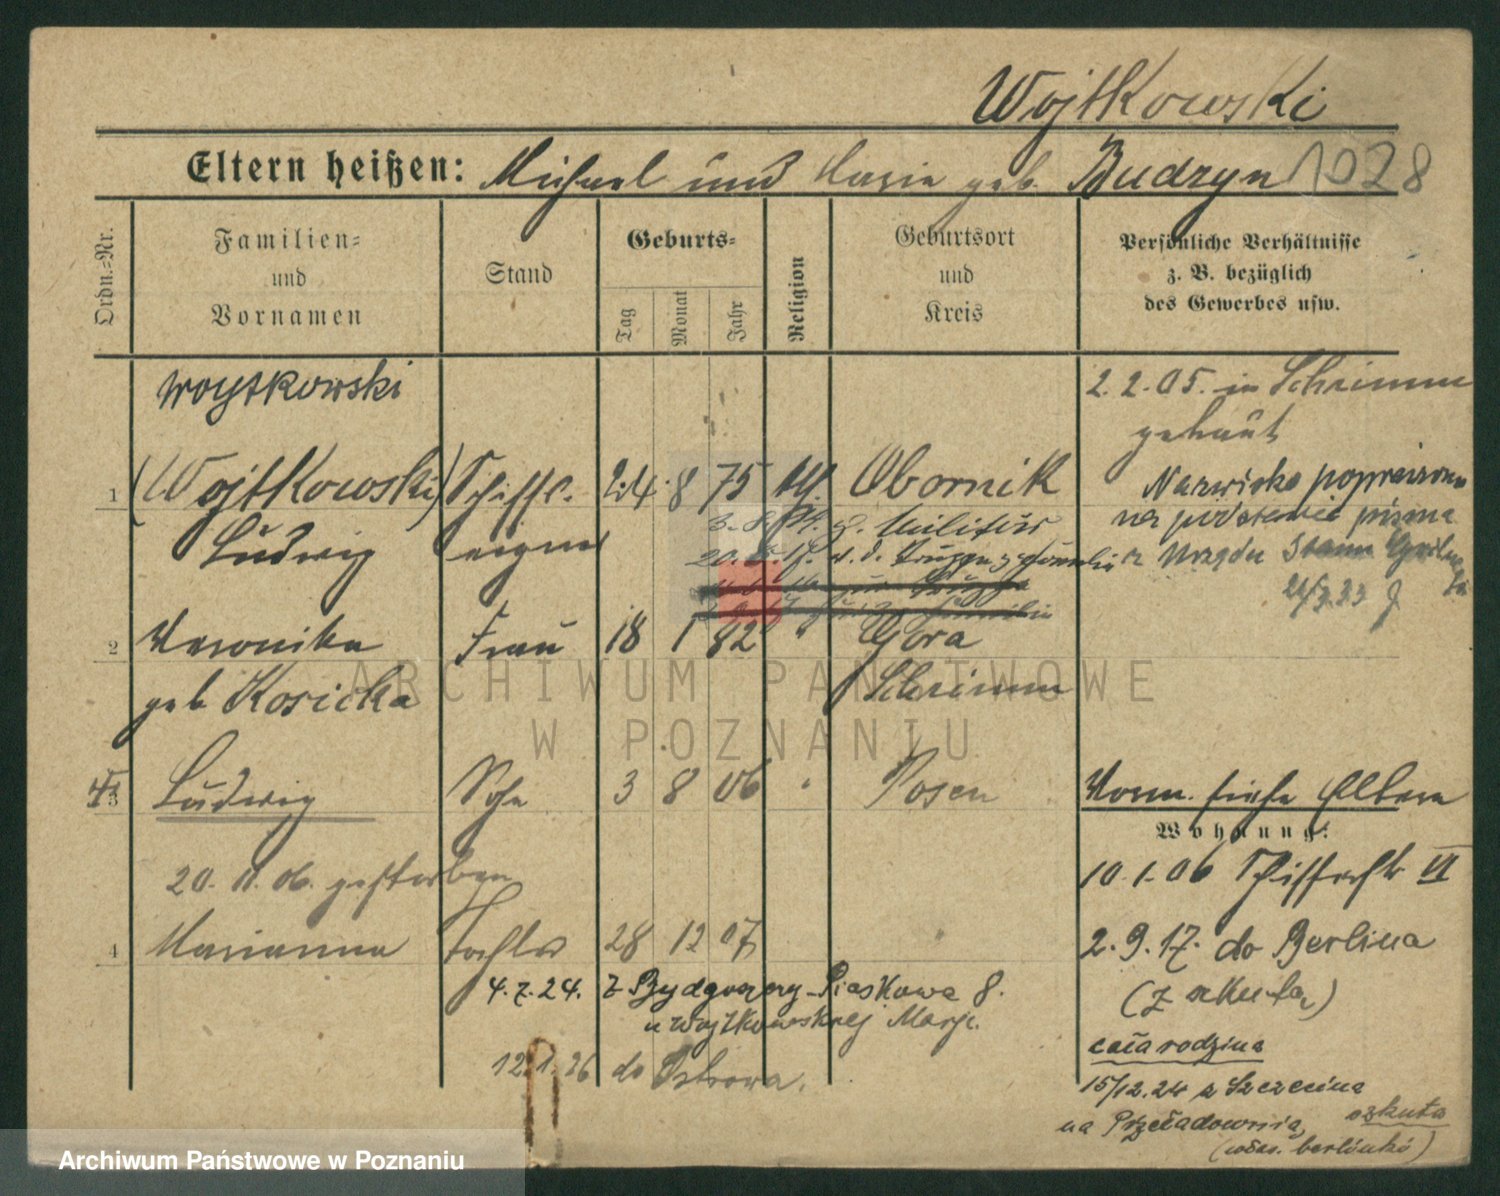 Wojtkowski
Eltern heißen: Michael und Maria geb. Budzyn 1028
Ordn.-Nr.
Familien- und Vornamen
Stand
Geburts-
Tag
Monat
Jahr
Religion
Geburtsort und Kreis
Persönliche Verhältnisse z. B. bezüglich des Gewerbes usw.
Woytkowski
2. 2. 05. in Schrimm
getraut
1 (Wojtkowski) Schiffs. 24 8 75 kth. Obornik
Ludwig eigner
Nazwisko poprawiono
na podstawie pisma
z Urzędu Stanu
2 Veronika Frau 18 1 82 " Góra
geb. Kosicka Schrimm
3 Ludwig Sohn 3 8 06 " Posen
Vorm. siehe Eltern
Wohnung:
20. 11. 06. gestorben
10. 1. 06 VI
4 Marianna Tochter 28 12 07
2. 9. 17. do Berlina
(z szkutą)
4. 7. 24. z Bydgoszczy-Piaskowa 8.
u Wojtkowskiej Marji.
12. 1. 26 do Ostrowa.
cała rodzina
15/12. 24 z Szczecina
na Przeładownię szkuta
(włas. berlinki)
ARCHIWUM PAŃSTWOWE
W POZNANIU
Archiwum Państwowe w Poznaniu